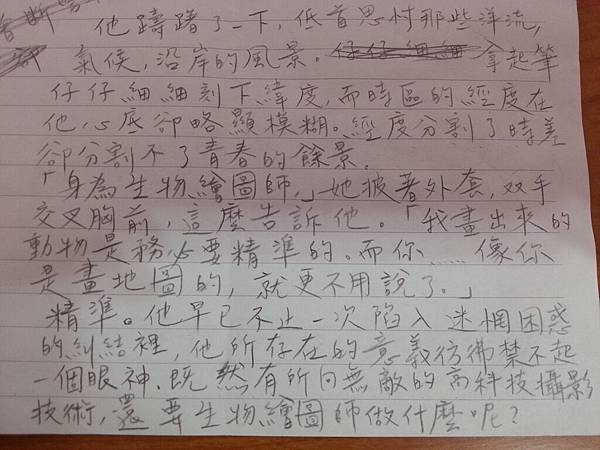 他躊躇了一下，低首思忖那些洋流，
氣候，沿岸的風景。拿起筆
仔仔細細刻下緯度，而時區的經度在
他心底卻略顯模糊。經度分割了時差
卻分割不了青春的餘景。
「身為生物繪圖師，」她披著外套，双手
交叉胸前，這麼告訴他。「我畫出來的
動物是務必要精準的。而你……像你
是畫地圖的，就更不用說了。」
精準。他早已不止一次陷入迷惘困惑
的糾結裡，他所存在的意義彷彿禁不起
一個眼神。既然有所向無敵的高科技攝影
技術，還要生物繪圖師做什麼呢？